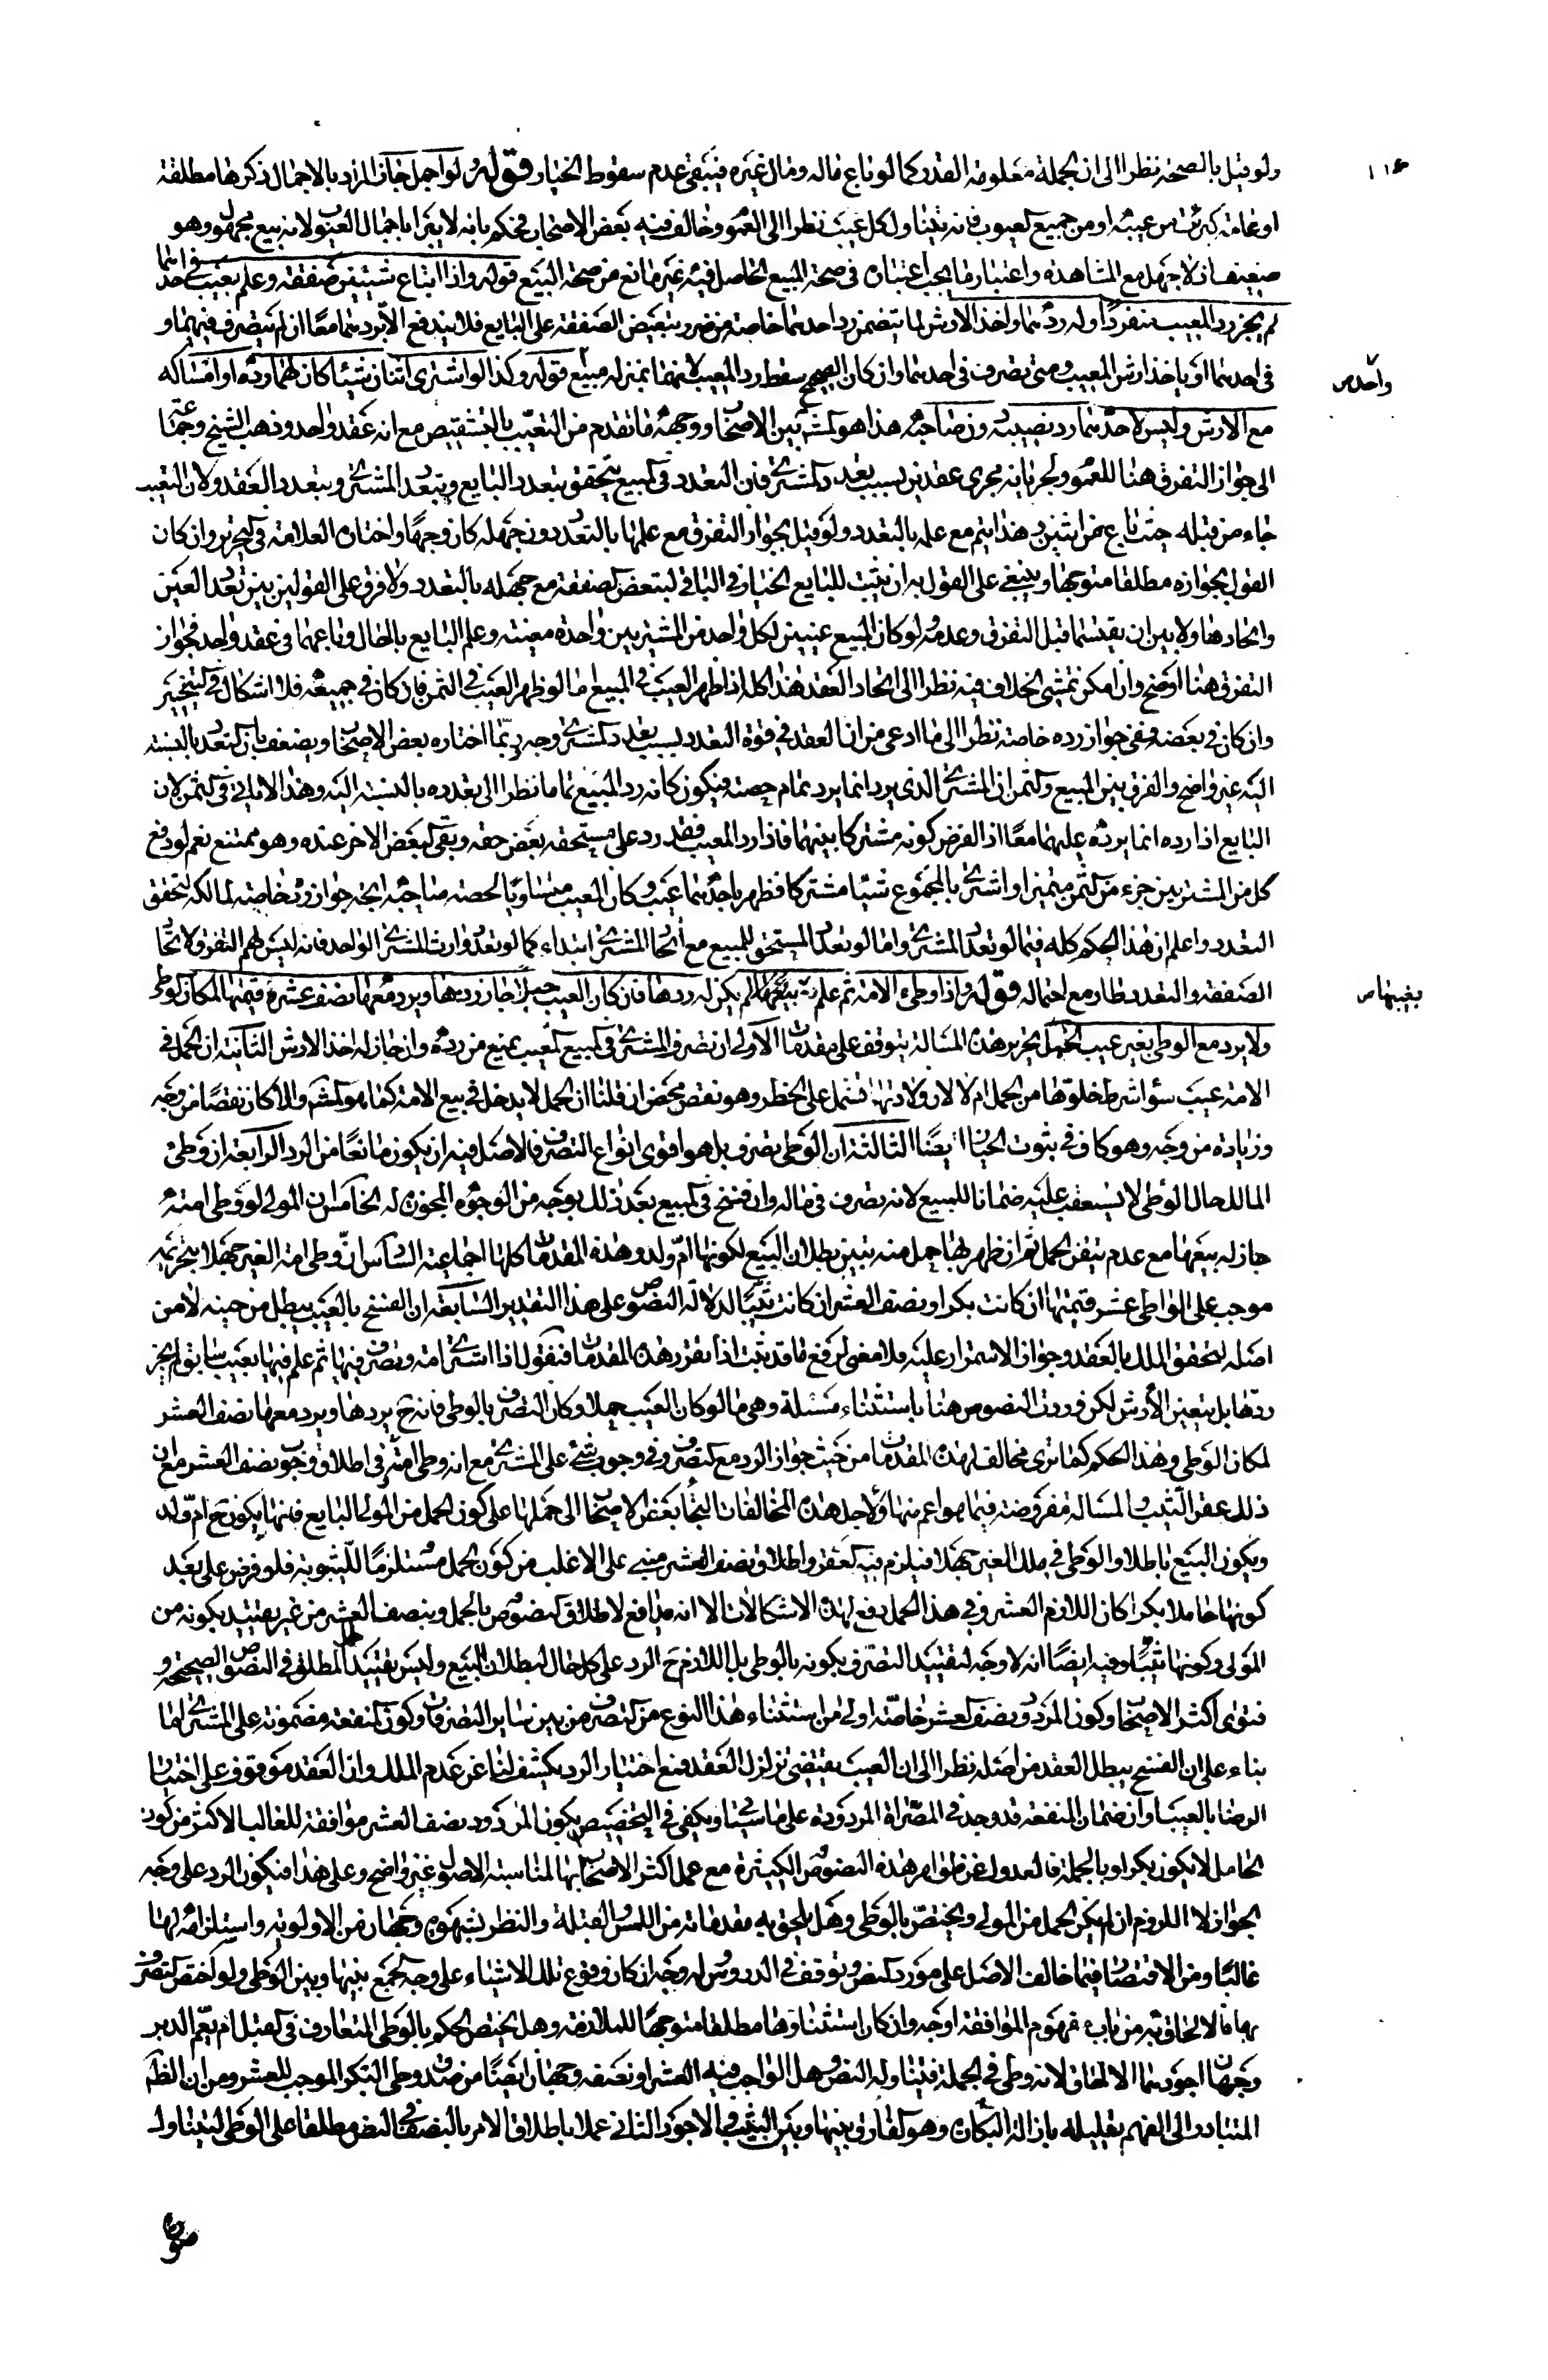 ولو قيل بالصحة نظرا الى ان الجملة معلومة القدر كما لو باع ماله ومال غيره فيبقى عدم سقوط الخيار قوله ولو اجمل جاز المراد بالاجمال ذكرها مطلقة
او عامة كبرئت من عيبه او من جميع العيوب فانه يتناول كل عيب نظرا الى العموم وخالف فيه بعض الاصحاب فحكم بانه لا يبرأ باجمال العيوب لانه بيع مجهول وهو
ضعيف اذ لا جهل مع المشاهدة واعتبار ما يجب اعتباره في صحة المبيع الحاصل فيه غير مانع من صحة البيع قوله واذا ابتاع شيئين صفقة وعلم بعيب في احدهما
لم يجز رد المعيب منفردا وله ردهما واخذ الارش لما يتضمن رد احدهما خاصة من ضرر بتبعيض الصفقة على البايع فلا يندفع الا بردهما معا ان لم يتصرف فيهما و
في احدهما او ياخذ ارش المعيب ومتى تصرف في احدهما وان كان الصحيح سقط رد المعيب لانهما بمنزلة مبيع قوله وكذا لو اشترى اثنان شيئا كان لهما رده او امساكه
واحد ص
مع الارش وليس لاحدهما رد نصيبه دون صاحبه هذا هو المشهور بين الاصحاب ووجهه ما تقدم من التعيب بالتشقيص مع انه عقد واحد وذهب الشيخ وجماعة
الى جواز التفرق هنا للعموم ولجريانه مجرى عقدين بسبب تعدد المشتري فان التعدد في البيع يتحقق بتعدد البايع وبتعدد المشتري وبتعدد العقد ولان التعيب
جاء من قبله حيث باع من اثنين وهذا يتم مع علمه بالتعدد ولو قيل بجواز التفرق مع علمه بالتعدد دون جهله كان وجها واختاره العلامة في التحرير وان كان
القول بجوازه مطلقا متوجها وينبغي على القول به ان يثبت للبايع الخيار في الباقي لتبعض الصفقة مع جهله بالتعدد ولا فرق على القولين بين تعدد العين
واتحادها ولا بين ان يقسما قبل التفرق وعدمه لو كان المبيع عينين لكل واحد من المشتريين واحدة معينة وعلم البايع بالحال وباعهما في عقد واحد فجواز
التفرق هنا اوضح وان امكن تمشي الخلاف فيه نظرا الى اتحاد العقد هذا كله اذا ظهر العيب في المبيع اما لو ظهر العيب في الثمن فان كان في جميعه فلا اشكال في التخيير
وان كان في بعضه ففي جواز رده خاصة نظرا الى ما ادعى من ان العقد في قوة التعدد بسبب تعدد المشتري وجه ربما اختاره بعض الاصحاب ويضعف بان التعدد بالنسبة
اليه غير واضح والفرق بين المبيع والثمن ان المشتري الذي يرد انما يرد تمام حصته فيكون كانه رد المبيع تماما نظرا الى تعدده بالنسبة اليه وهذا لا ياتي في الثمن لان
البايع اذا رده انما يرده عليهما معا اذ الفرض كونه مشتركا بينهما فاذا رد المعيب فقد رد على مستحقه بعض حقه وبقي البعض الاخر عنده وهو ممتنع نعم لو دفع
كل من المشتريين جزء من الثمن متميز او اشترى بالمجموع شيئا مشتركا فظهر باحدهما عيب وكان المعيب مساويا لحصة صاحبه اتجه جواز رده خاصة لمالكه لتحقق
التعدد واعلم ان هذا الحكم كله فيما لو تعدد المشتري واما لو تعدد المستحق للمبيع مع اتحاد المشتري ابتداء كما لو تعدد وارث المشتري الواحد فانه ليس لهم التفرق لاتحاد
الصفقة والتعدد طار مع احتماله قوله واذا وطئ الامة ثم علم لم يكن له ردها فان كان العيب حبلا جاز ردها ويرد معها نصف عشر قيمتها لمكان الوطئ
بعيبها ص
ولا يرد مع الوطي بغير عيب الحبل تحرير هذه المسالة يتوقف على مقدمات الاولى ان تصرف المشتري في المبيع المعيب يمنع من رده وان جاز له اخذ الارش الثانية ان الحمل في
الامة عيب سواء شرط خلوها من الحمل ام لا لان ولادتها تشتمل على الخطر وهو نقص محض ان قلنا ان الحمل لا يدخل في بيع الامة كما هو المشهور والا كان نقصا من وجه
وزيادة من وجه وهو كاف في ثبوت الخيار ايضا الثالثة ان الوطي تصرف بل هو اقوى انواع التصرف فالاصل فيه ان يكون مانعا من الرد الرابعة ان وطئ
المالك حال الوطي لا يستعقب عليه ضمانا للبيع لانه تصرف في ماله وان فسخ في البيع بعد ذلك بوجه من الوجوه المجوزة له الخامس ان المولى لو وطئ امته
جاز له بيعها مع عدم تيقن الحمل ثم ان ظهر بها حمل منه تبين بطلان البيع لكونها ام ولد وهذه المقدمات كلها اجماعية السادس ان وطي امة الغير جهلا بتحريمه
موجب على الواطي عشر قيمتها ان كانت بكرا ونصف العشر ان كانت ثيبا لدلالة النصوص على هذا التقدير السابعة ان الفسخ بالعيب يبطل من حينه لا من
اصله لتحقق الملك بالعقد وجواز الاستمرار عليه فلا معنى لرفع ما قد ثبت اذا تقرر هذه المقدمات فنقول اذا اشترى امة وتصرف فيها ثم علم فيها بعيب سابق لم يجز
ردها بل يتعين الارش لكن وردت النصوص هنا باستثناء مسئلة وهي ما لو كان العيب حملا وكان التصرف بالوطي فانه ح يردها ويرد معها نصف العشر
لمكان الوطي وهذا الحكم كما ترى مخالف لهذه المقدمات من حيث جواز الرد مع التصرف وفي وجوب شئ على المشتري مع انه وطي امته وفي اطلاق وجوب نصف العشر مع ان
ذلك عقر الثيب والمسالة مفروضة فيما هو اعم منها ولاجل هذه المخالفات التجأ بعض الاصحاب الى حملها على كون الحمل من المولى البايع فانها يكون ح ام ولد
ويكون البيع باطلا والوطي في ملك الغير جهلا فيلزم فيه العقر واطلاق نصف العشر مبني على الاغلب من كون الحمل مستلزما للثيبوبة فلو فرض على بعد
كونها حاملا بكرا كان اللازم العشر وفي هذا الحمل دفع لهذه الاشكالات الا انه مدافع لاطلاق النصوص بالحمل وبنصف العشر من غير تقييد بكونه من
المولى وكونها ثيبا وفيه ايضا انه لا وجه لتقييد التصرف بكونه بالوطي بل اللازم ح الرد على كل حال لبطلان البيع وليس تقييد الحمل المطلق في النصوص الصحيحة و
فتوى اكثر الاصحاب وكون المردود نصف العشر خاصة اولى من استثناء هذا النوع من التصرف من بين ساير التصرفات وكون المنفعة مضمونة على المشتري اما
بناء على ان الفسخ يبطل العقد من اصله نظرا الى ان العيب يقتضي تزلزل العقد فمع اختيار الرد يكشف لنا عن عدم الملك وان العقد موقوف على اختيار
الرضا بالعيب او ان ضمان المنفعة قد وجد في المصراة المردودة على ما سياتي ويكفي في التخصيص بكون المردود نصف العشر موافقة للغالب الاكثر من كون
الحامل لا يكون بكرا وبالجملة فالعدول عن ظواهر هذه النصوص الكثيرة مع عمل اكثر الاصحاب بها لمناسبة الاصول غير واضح وعلى هذا فيكون الرد على وجه
الجواز لا اللزوم ان لم يكن الحمل من المولى ويختص بالوطي وهل يلحق به مقدماته من اللمس والقبلة والنظر بشهوة وجهان من الاولوية واستلزامه لها
غالبا ومن الاقتصار فيما خالف الاصل على مورد النص وتوقف في الدروس وله وجه ان كان وقوع تلك الاشياء على وجه الجمع بينها وبين الوطي ولو اختص التصرف
بها فالالحاق به من باب مفهوم الموافقة اوجه وان كان استثناؤها مطلقا متوجها للملازمة وهل يختص الحكم بالوطي المتعارف في القبل ام يعم الدبر
وجهان اجودهما الالحاق لانه وطي في الجملة فيتناوله النص وهل الواجب فيه العشر او نصفه وجهان ايضا من صدق وطي البكر الموجب للعشر ومن ان الظاهر
المتبادر الى الفهم تعليله بازالة البكارة وهو الفارق بينها وبين الثيب والاجود الثاني عملا باطلاق الامر بالنصف في النص مطلقا على الوطي ليتناول